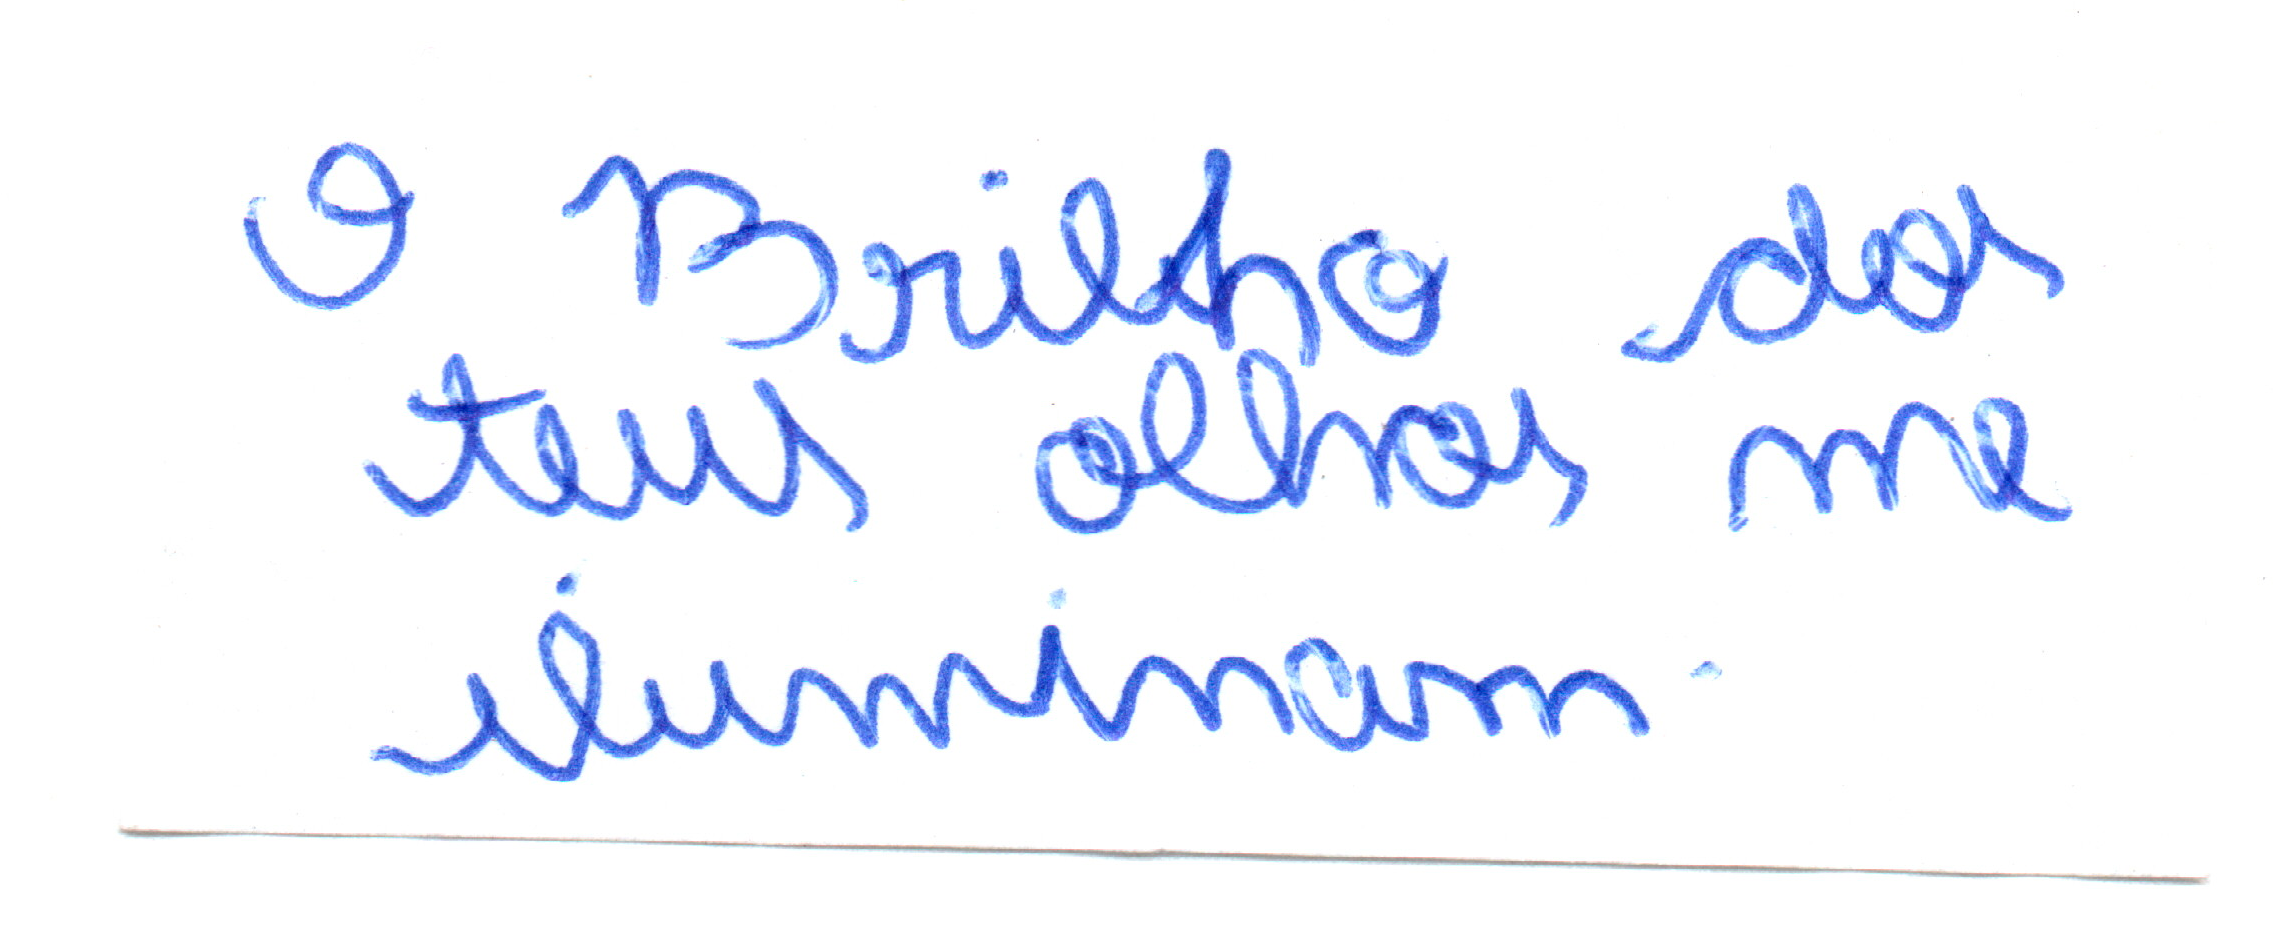 O Brilho dos
teus olhos me
iluminam.